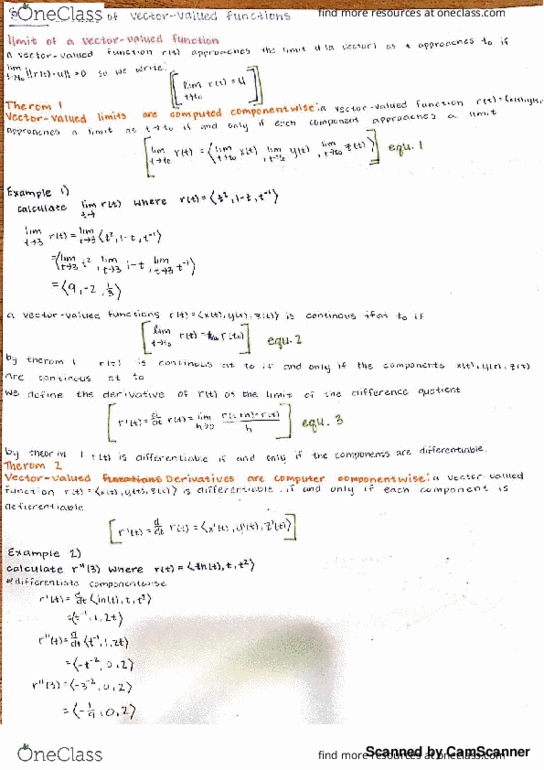 OneClass
find more resources at oneclass.com
of vector-valued functions
limit of a vector-valued function
A vector-valued function r(t) approaches the limit u (a vector) as t approaches to if
lim t→to ||r(t)-u|| = 0 so we write:
[lim t→to r(t) = u]
Therom 1
Vector-valued limits are computed componentwise: a vector-valued function r(t)=
approaches a limit as t→to if and only if each component approaches a limit
[lim t→to r(t) = ⟨lim t→to x(t), lim t→to y(t), lim t→to z(t)⟩] equ. 1
Example 1)
calculate lim r(t) where r(t) = ⟨t², 1-t, t⁻¹⟩
lim t→3 r(t) = lim t→3 ⟨t², 1-t, t⁻¹⟩
= ⟨lim t→3 t², lim t→3 1-t, lim t→3 t⁻¹⟩
= ⟨9, -2, 1/3⟩
a vector-valued functions r(t) = ⟨x(t), y(t), z(t)⟩ is continous at to if
[lim t→to r(t) = r(to)] equ. 2
by therom 1 r(t) is continous at to if and only if the components x(t), y(t), z(t)
are continous at to
we define the derivative of r(t) as the limit of the difference quotient
[r'(t) = d/dt r(t) = lim h→0 r(t+h)-r(t)/h] equ. 3
by theorm 1 r(t) is differentiable if and only if the components are differentiable.
Therom 2
Vector-valued functions Derivatives are computer componentwise: a vector-valued
function r(t) = ⟨x(t), y(t), z(t)⟩ is differentiable if and only if each component is
differentiable
[r'(t) = d/dt r(t) = ⟨x'(t), y'(t), z'(t)⟩]
Example 2)
calculate r"(3) where r(t) = ⟨ln(t), t, t²⟩
*differentiate componentwise
r'(t) = d/dt ⟨ln(t), t, t²⟩
= ⟨t⁻¹, 1, 2t⟩
r"(t) = d/dt ⟨t⁻¹, 1, 2t⟩
= ⟨-t⁻², 0, 2⟩
r"(3) = ⟨-3⁻², 0, 2⟩
= ⟨-1/9, 0, 2⟩
OneClass
find more resources at oneclass.com
Scanned by CamScanner